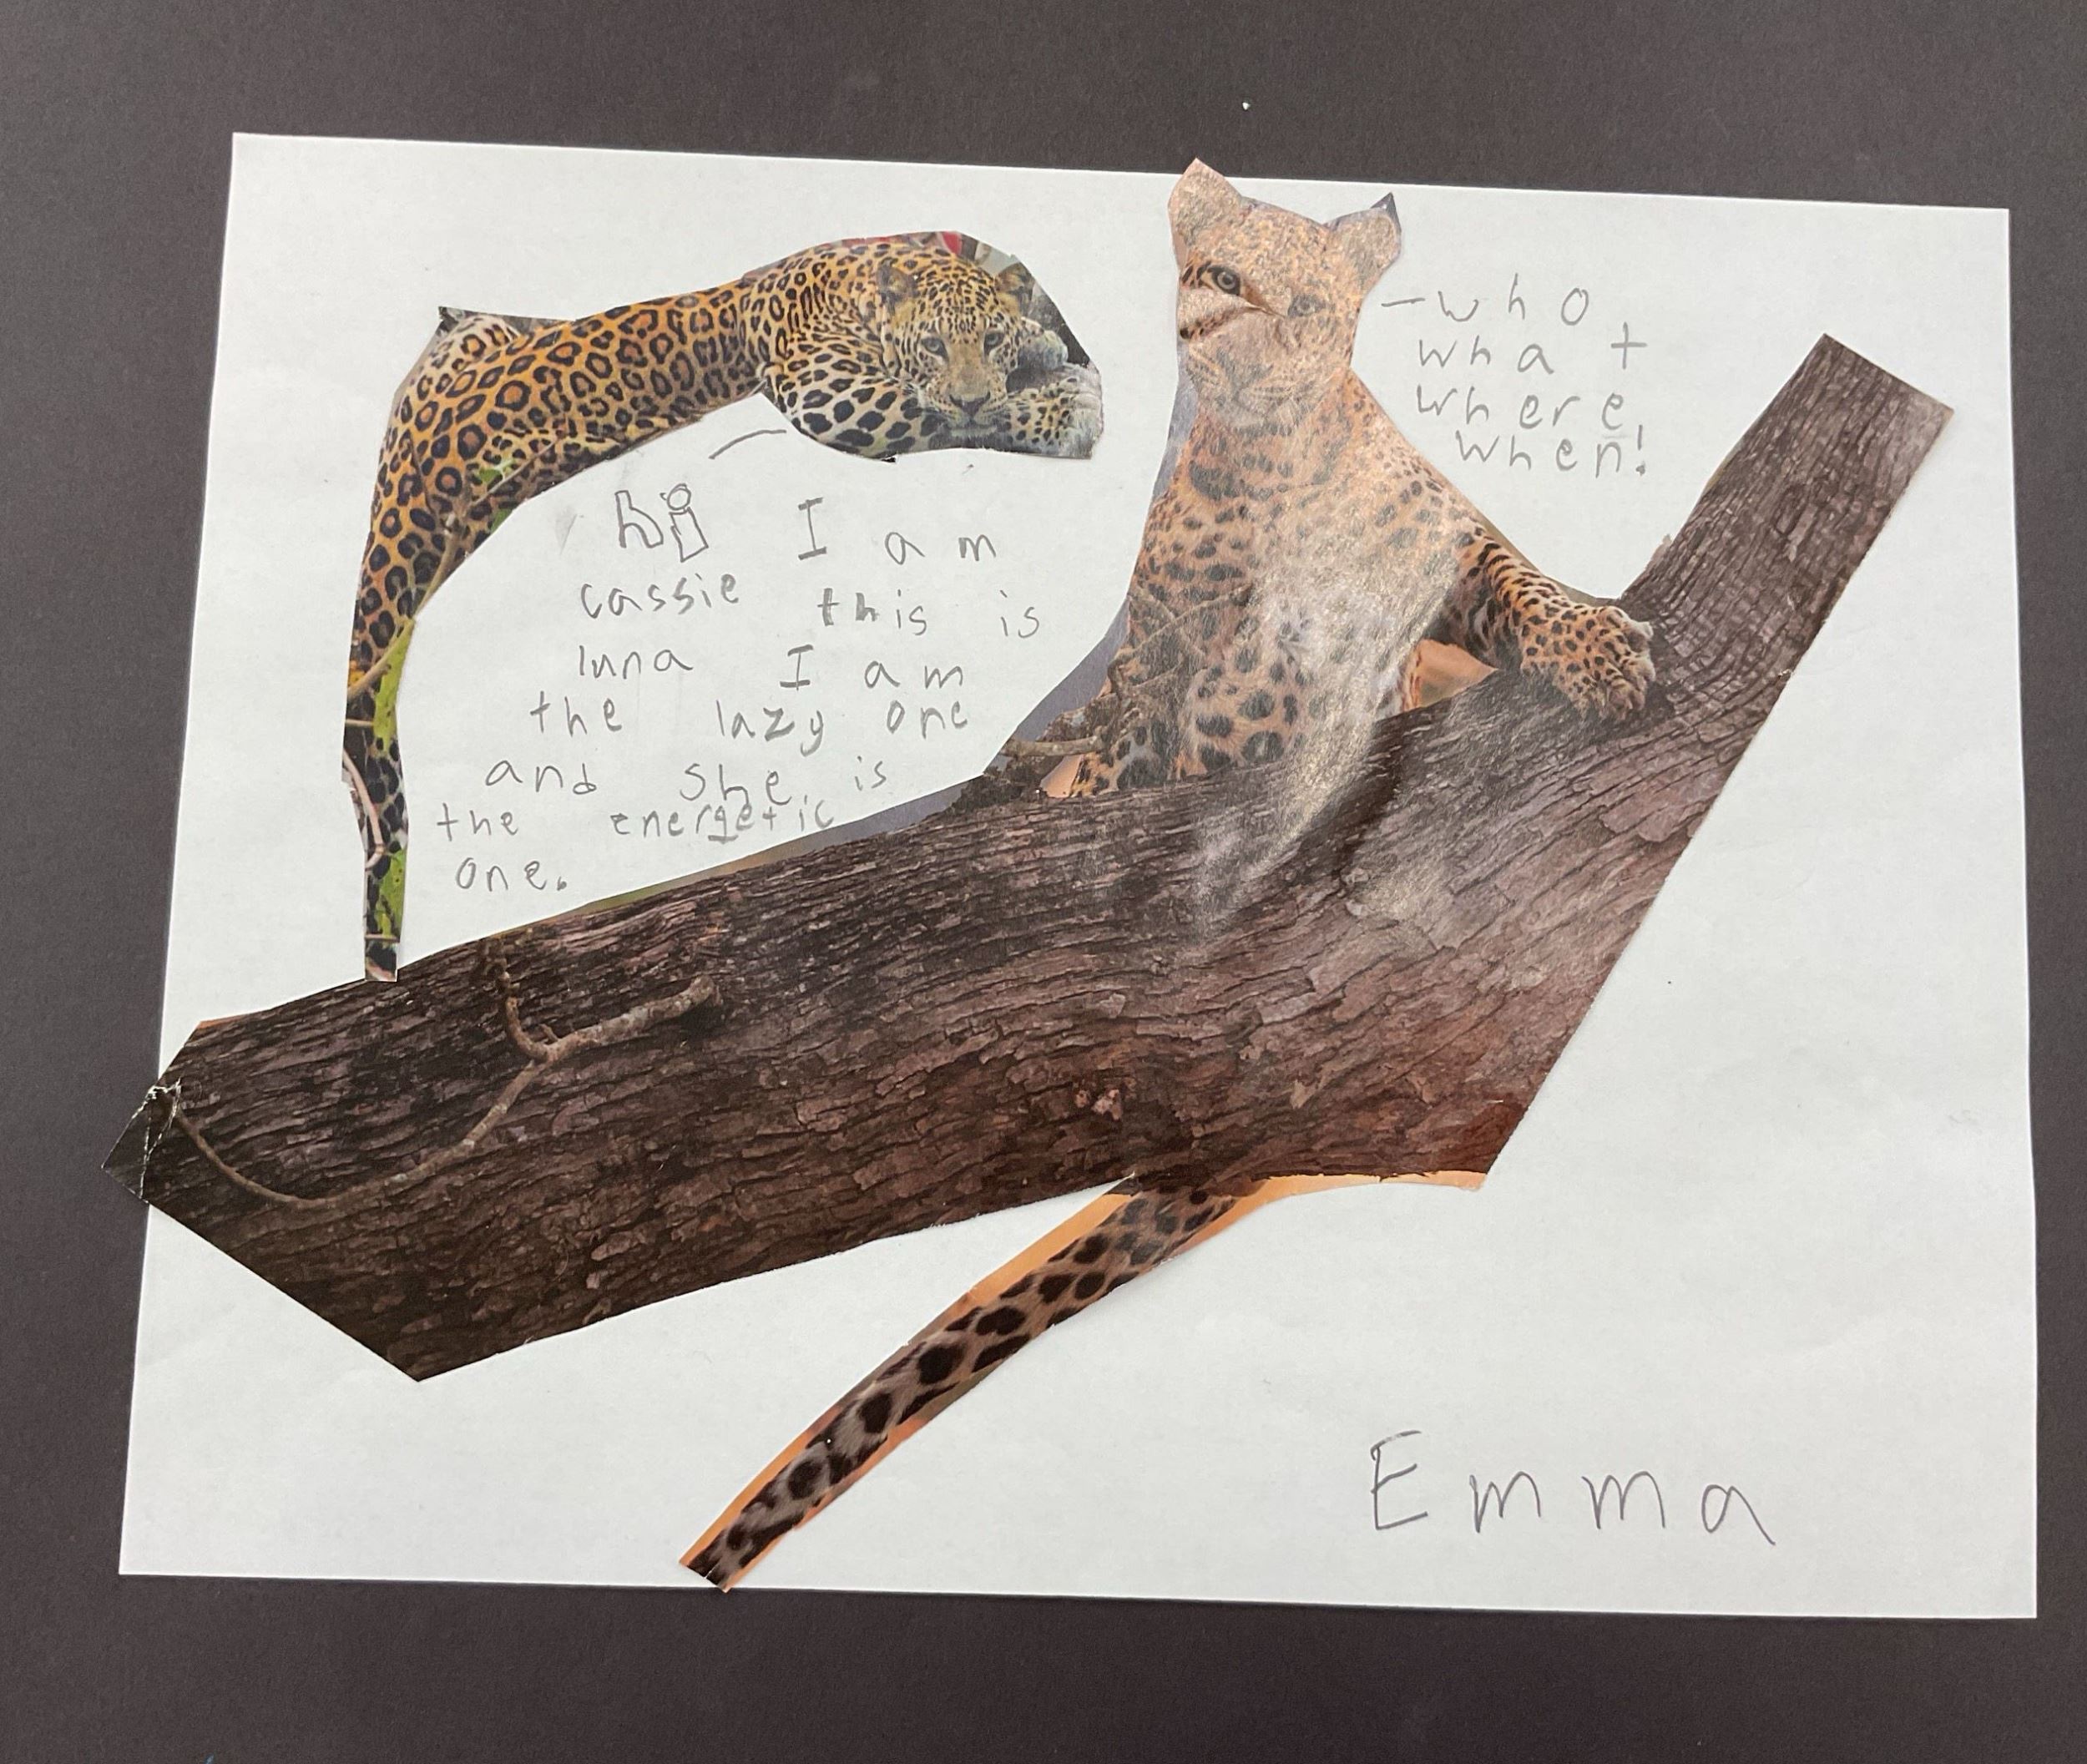 hi I am
cassie this is
luna I am
the lazy one
and she is
the energetic
one.
-who
what
where
when!
Emma